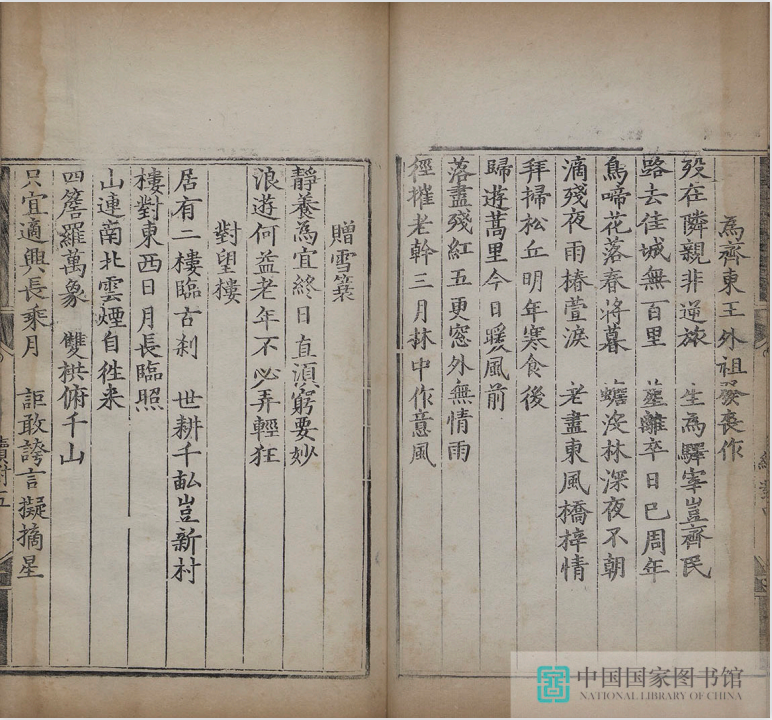 為齊東王外祖發喪作
歿在隣親非逆旅　生為驛宰豈齊民
路去佳城無百里　塟離卒日已周年
鳥啼花落春將暮　蟾沒林深夜不朝
滴殘夜雨椿萱淚　老盡東風橋梓情
拜掃松丘明年寒食後
歸遊萬里今日暖風前
落盡殘紅五更窓外無情雨
經摧老幹三月林中作意風
贈雪簑
靜養為宜終日直湏窮要妙
浪遊何益老年不必弄輕狂
對望樓
居有二樓臨古刹　世耕千畝豈新村
樓對東西日月長臨照
山連南北雲煙自徃来
四簷羅萬象　雙栱俯千山
只宜適興長乘月　詎敢誇言擬摘星
中国国家图书馆
NATIONAL LIBRARY OF CHINA